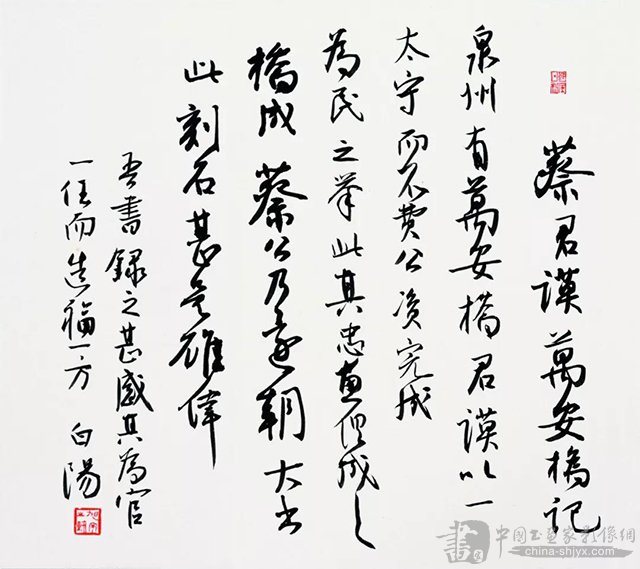 蔡君謨萬安橋記
泉州有萬安橋君謨以一
太守而不費公資完成
為民之舉此其忠惠俱成之
橋成蔡公乃還朝大書
此刻石甚是雄偉
吾書錄之甚感其為官
一任而造福一方 白陽
中國書畫家影像網
china-shjyx.com